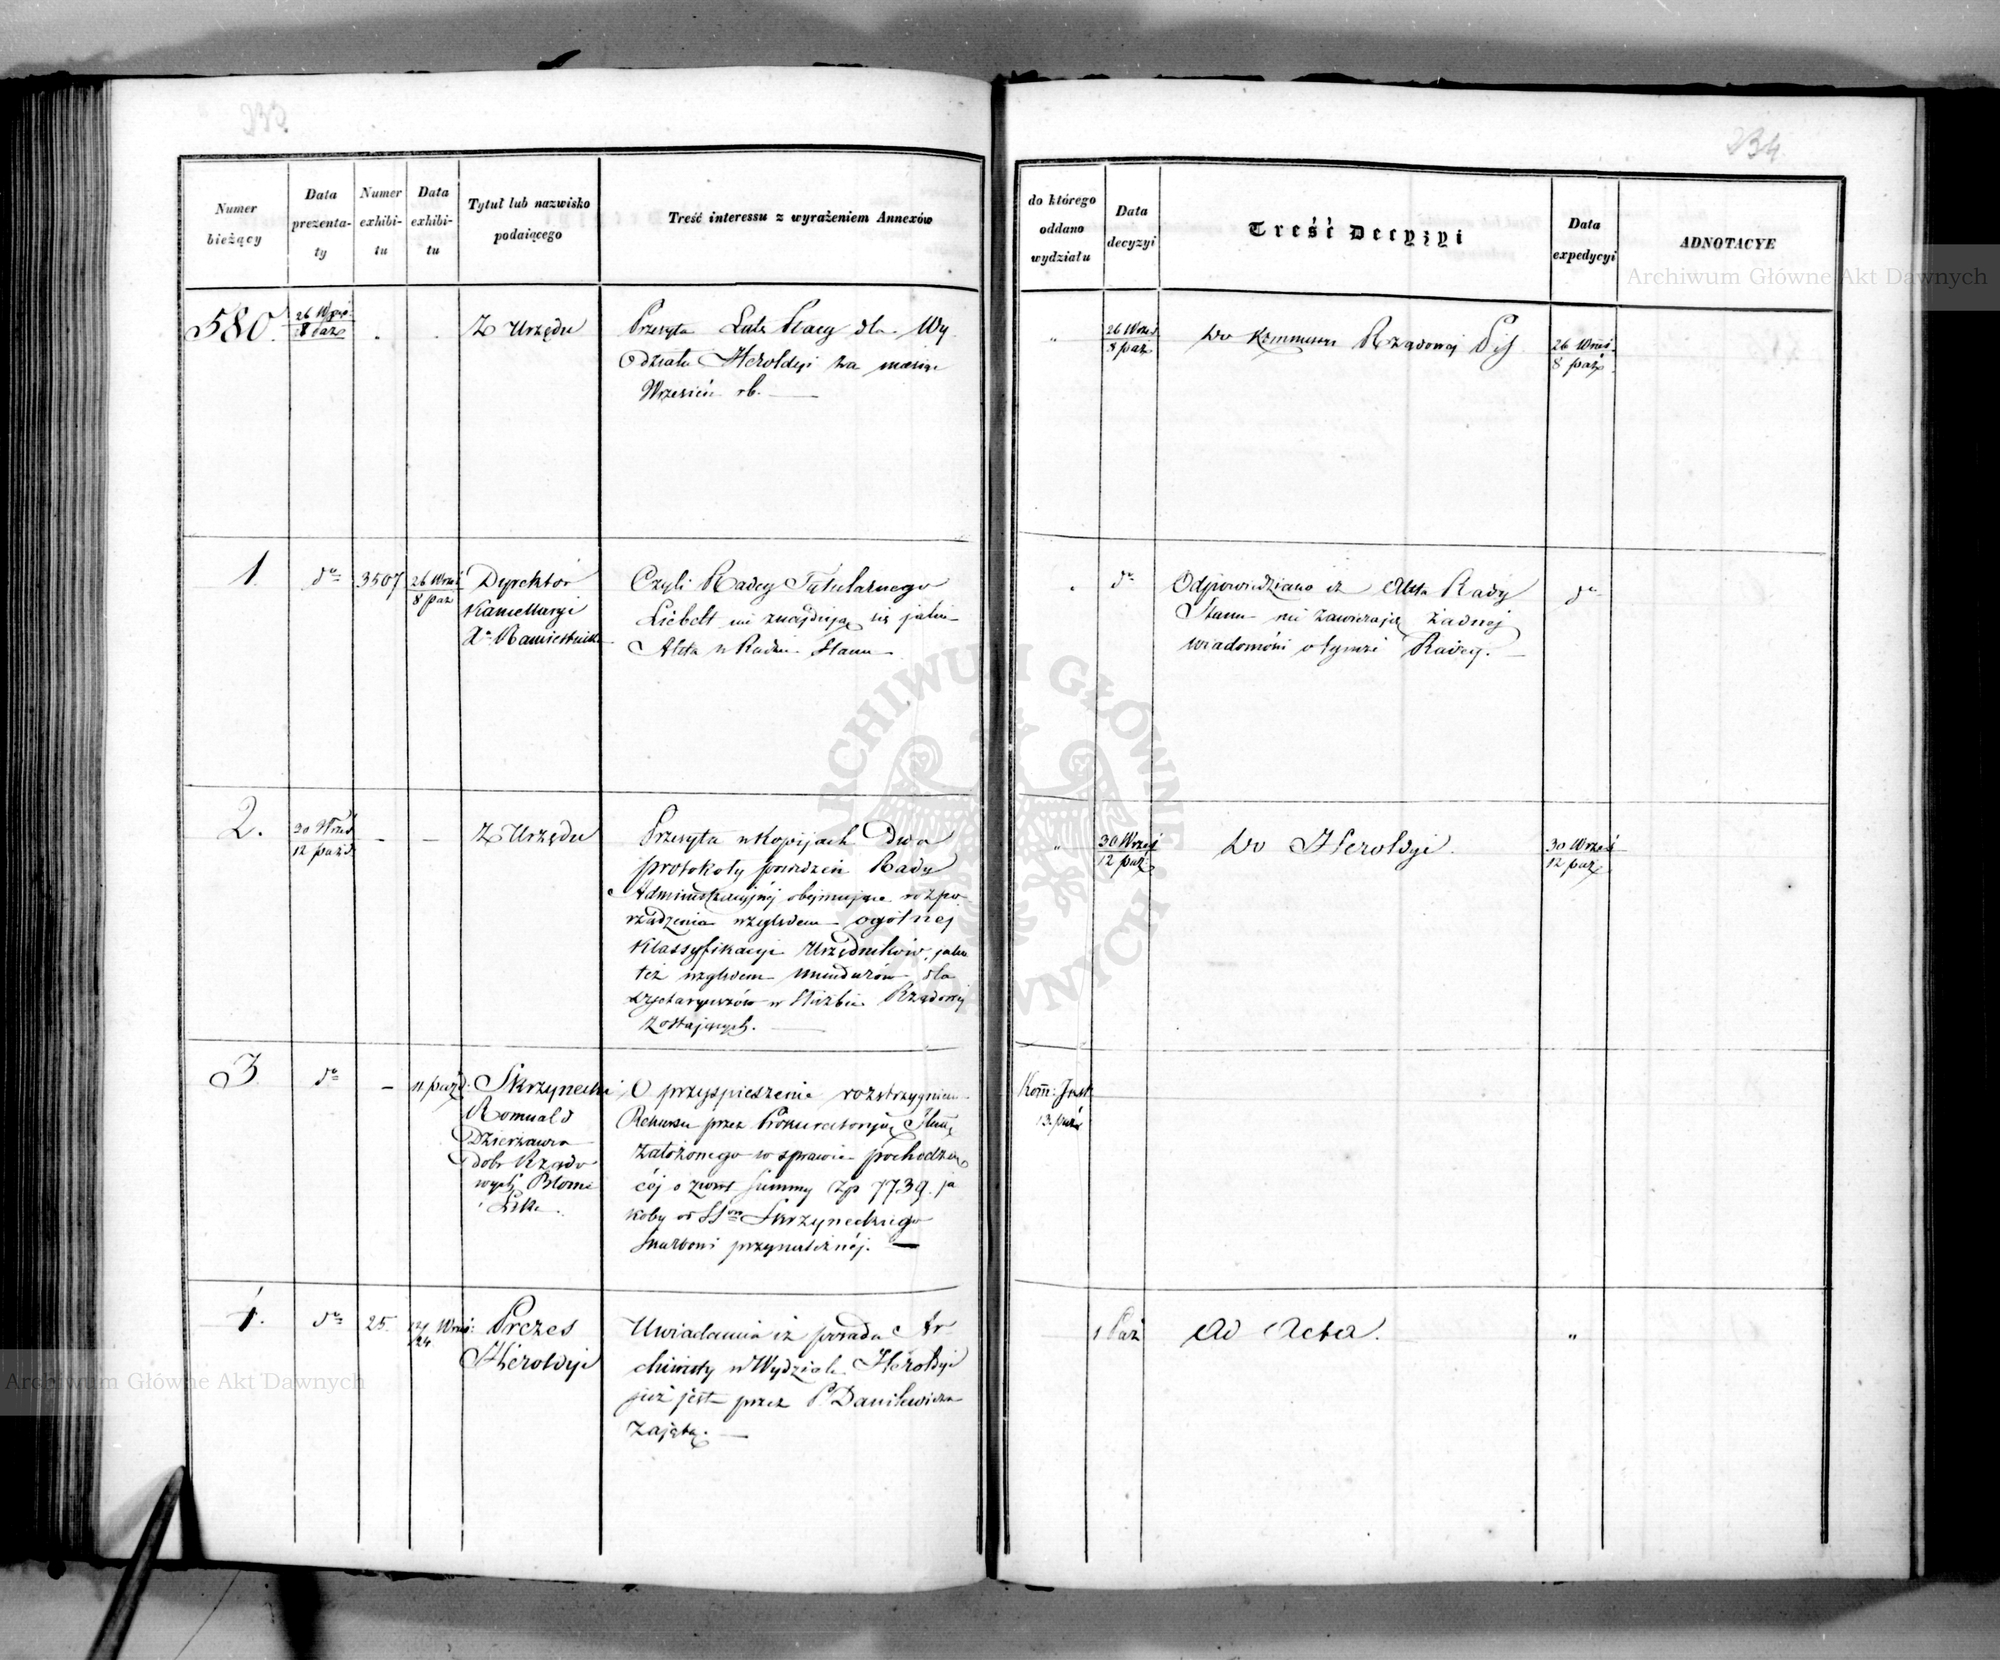 234
Numer
bieżący
Data
prezenta-
ty
Numer
exhibi-
tu
Data
exhibi-
tu
Tytuł lub nazwisko
podaiącego
Treść interessu z wyrażeniem Annexów
do którego
oddano
wydziału
Data
decyzyi
Treść Decyzyi
Data
expedycyi
ADNOTACYE
580.
8 paź
Z Urzędu
Przesyła dla Wy
działu Heroldyi za miesiąc
Wrzesień rb.
"
26 Wrześ
8 paź
Do Rządowej
26 Wrześ
8 paź
1.
do
3507
26 Wrześ
8 paź
Dyrektor
Kancellaryi
Xa Namiestnika
Czyli Radcy Tytularnego
Liebelt nie znajdują się jakie
Akta w Radzie Stanu
do
Odpowiedziano iż Akta Rady
Stanu nie zawierają żadnej
wiadomości o tymże Radcy.
do
2.
30 Wrześ
12 paźd
Z Urzędu
Przesyła w Kopijach Dwa
protokoły posiedzeń Rady
Administracyjnéj obejmujące rozpo
rządzenia względem ogólnej
Klassyfikacyi Urzędników, jako
też względem mundurów dla
w Służbie Rządowej
zostających.
"
30 Wrześ
12 paź
Do Heroldyi.
30 Wrześ
12 paź
3
do
11 paźd:
Skrzynecki
Romuald
Dzierżawca
dóbr Rządo
wych Błonie
i
O przyspieszenie rozstrzygnienia
Rekursu przez Prokuratoryą
założonego w sprawie pochodzą
cój o zwrot summy Zp 7739. ja
koby od Skrzyneckiego
Skarbowi przynależnéj.
Kom: Just
13. paź
4.
do
25.
Wrześ:
24
Prezes
Heroldyi
Uwiadamia iż posada Ar
chiwisty w Wydziale Heroldyi
już jest przez P. Danilewicza
zajętą.
1 Paź
Ad Acta.
"
Archiwum Główne Akt Dawnych
Archiwum Główne Akt Dawnych
ARCHIWUM GŁÓWNE AKT DAWNYCH